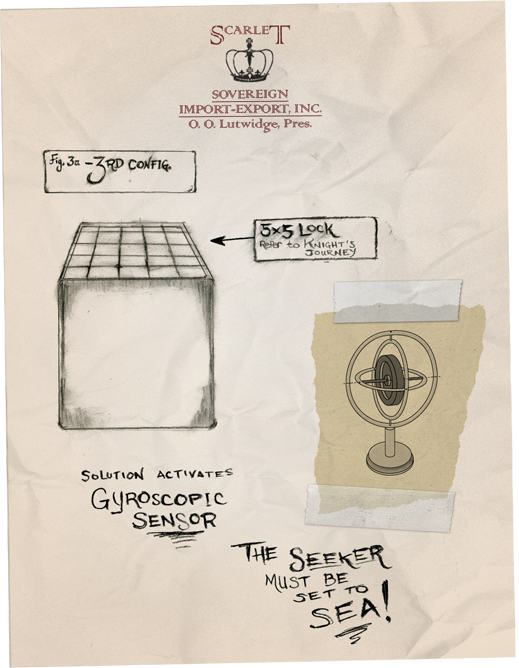 SCARLET
SOVEREIGN
IMPORT-EXPORT, INC.
O. O. Lutwidge, Pres.
Fig. 3a - 3RD CONFIG.
5x5 LOCK
Refer to KNIGHT'S
JOURNEY
SOLUTION ACTIVATES
GYROSCOPIC
SENSOR
THE SEEKER
MUST BE
SET TO
SEA!